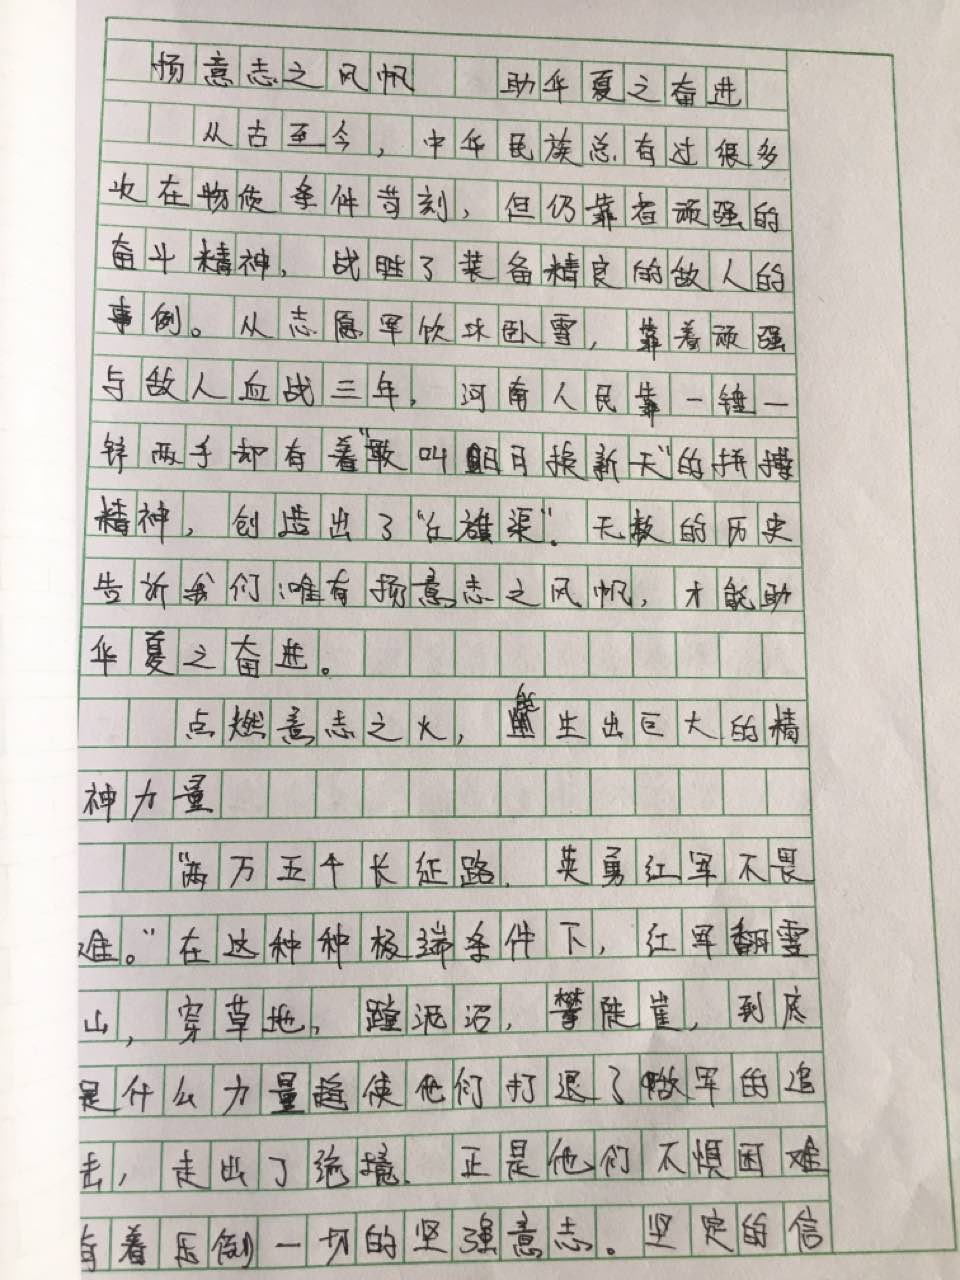 扬意志之风帆 助华夏之奋进
从古至今，中华民族总有过很多
次在物质条件苛刻，但仍靠着顽强的
奋斗精神，战胜了装备精良的敌人的
事例。从志愿军饮冰卧雪，靠着顽强
与敌人血战三年，河南人民靠一锤一
锌两手却有着“敢叫明月换新天”的拼搏
精神，创造出了“红旗渠”。无数的历史
告诉我们：唯有扬意志之风帆，才能助
华夏之奋进。
点燃意志之火，能生出巨大的精
神力量
“两万五千长征路，英勇红军不畏
难。”在这种种极端条件下，红军翻雪
山，穿草地，蹚泥沼，攀陡崖，到底
是什么力量趋使他们打退了敌军的追
击，走出了绝境。正是他们不惧困难
有着压倒一切的坚强意志。坚定的信